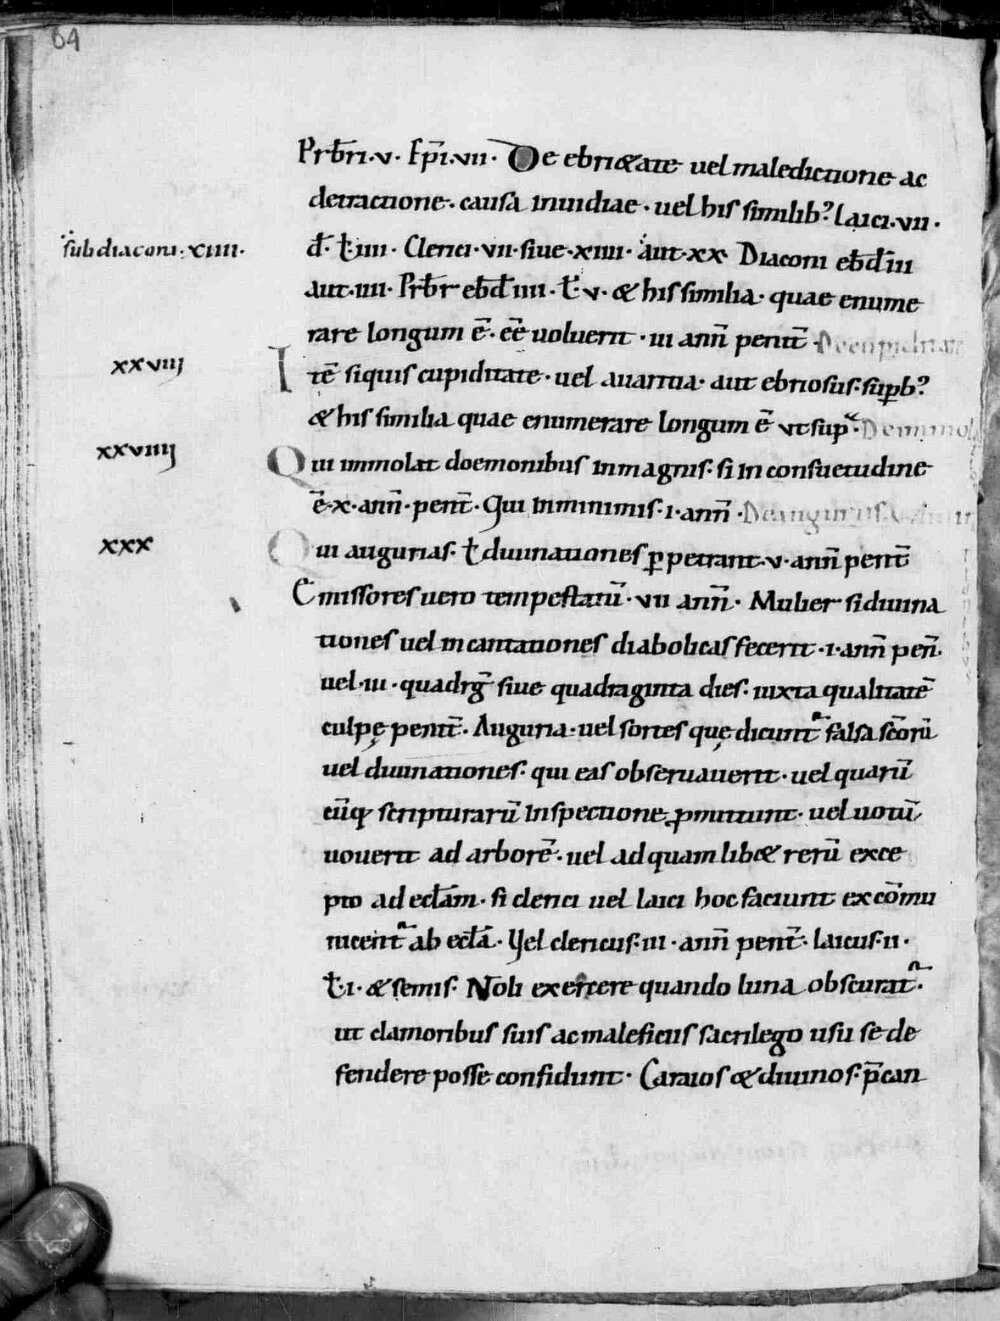 64
Prb̄ri·v· Ep̄i·vii· De ebrietate uel maledictione ac
detractione· causa inuidiae· uel his similib; laici·vii·
subdiaconi·xiiii·
d̄· ł iiii· Clerici·vii·siue·xiiii· aut·xx Diaconi ebd̄ iii
aut·iiii· Prb̄r ebd̄ iiii· ł v· & his similia· quae enume
rare longum ē· eē uoluerit· iii ann̄ penit̄· De cupiditate
xxviij
Itē siquis cupiditate· uel auaritia· aut ebriosus· sup̱b;
& his similia quae enumerare longum ē ut sup̱· De immol
xxviiij
Qui immolat doemonibus inmagnis· si in consuetudine
ē·x·ann̄·penit̄· Qui inminimis·i·ann̄· De auguriis
xxx
Qui augurias· ł diuinationes p̱petrant·v·ann̄ penit̄
Emissores uero tempestatū·vii ann̄· Mulier si diuina
tiones uel incantationes diabolicas fecerit·i·ann̄ pen̄·
uel·iii·quadrḡ siue quadraginta dies· iuxta qualitatē
culpę penit̄· Auguria·uel sortes quę dicunt̃ falsa scōrū
uel diuinationes· qui eas obseruauerit· uel quarū
cūq scripturarū inspectione p̱mittunt· uel uotū
uouerit ad arborē· uel ad quam libet rerū exce
pto ad eclām· si clerici uel laici hoc faciunt excōmu
nicent̃ ab eclā· Vel clericus·iii·ann̄ penit̄· laicus·ii·
ł·i·& semis· Noli exercere quando luna obscurat̃·
ut clamoribus suis ac maleficiis sacrilego usu se de
fendere posse confidunt· Caraios & diuinos· p̄can